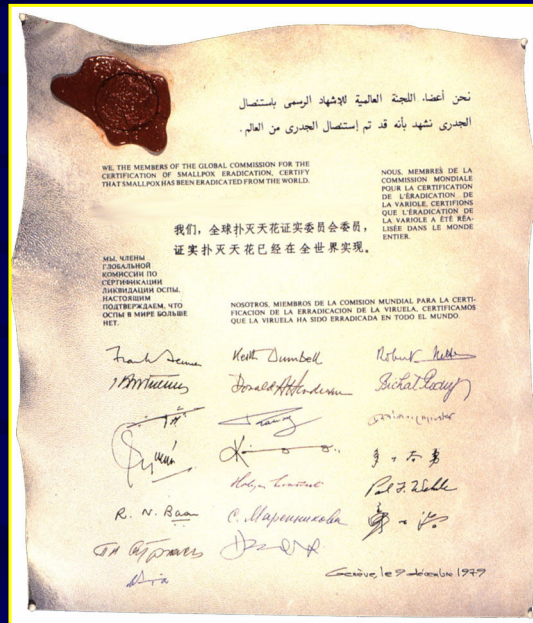 نحن أعضاء اللجنة العالمية للإشهاد الرسمى باستئصال
الجدرى نشهد بأنه قد تم إستئصال الجدرى من العالم .
WE, THE MEMBERS OF THE GLOBAL COMMISSION FOR THE
CERTIFICATION OF SMALLPOX ERADICATION, CERTIFY
THAT SMALLPOX HAS BEEN ERADICATED FROM THE WORLD.
NOUS, MEMBRES DE LA
COMMISSION MONDIALE
POUR LA CERTIFICATION
DE L'ÉRADICATION DE
LA VARIOLE, CERTIFIONS
QUE L'ÉRADICATION DE
LA VARIOLE A ÉTÉ RÉA-
LISÉE DANS LE MONDE
ENTIER.
我们，全球扑灭天花证实委员会委员，
证实扑灭天花已经在全世界实现。
МЫ, ЧЛЕНЫ
ГЛОБАЛЬНОЙ
КОМИССИИ ПО
СЕРТИФИКАЦИИ
ЛИКВИДАЦИИ ОСПЫ,
НАСТОЯЩИМ
ПОДТВЕРЖДАЕМ, ЧТО
ОСПЫ В МИРЕ БОЛЬШЕ
НЕТ.
NOSOTROS, MIEMBROS DE LA COMISION MUNDIAL PARA LA CERTI-
FICACION DE LA ERRADICACION DE LA VIRUELA, CERTIFICAMOS
QUE LA VIRUELA HA SIDO ERRADICADA EN TODO EL MUNDO.
Frank Fenner Keith Dumbell Robert Netter
Donald A Henderson
Paul F. Wehrle
R. N. Basu С. Маренникова
Genève, le 9 décembre 1979